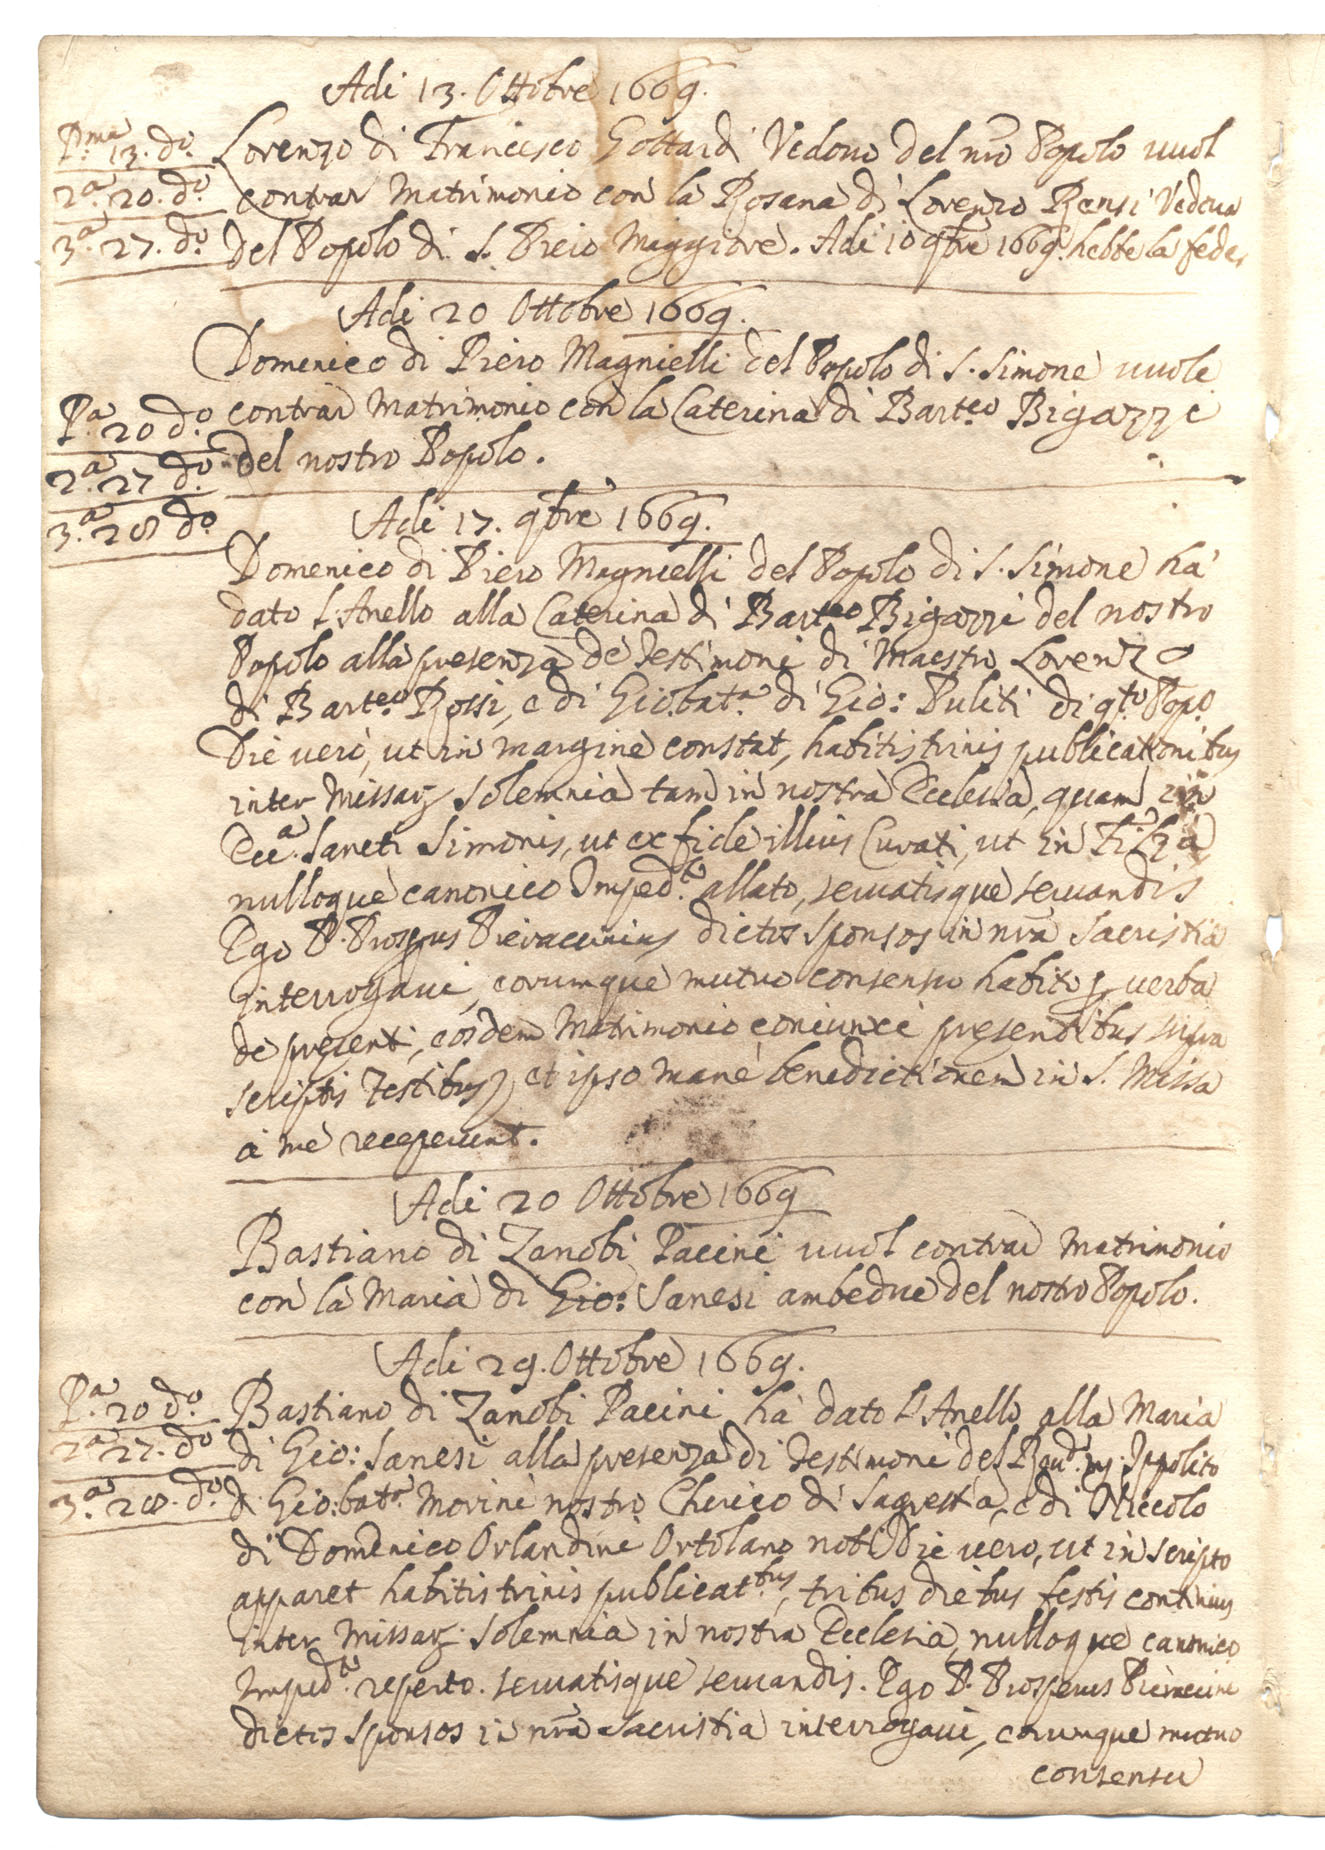 Adi 13. Ottobre 1669.
P.ma 13. do.
Lorenzo di Francesco Gottardi Vedovo del nro Popolo vuol
2.a 20. do.
contrar Matrimonio con la Rosana di Lorenzo Rensi Vedova
3.a 27. do.
del Popolo di S. Piero Maggiore. Adi 10 9bre 1669. hebbe la fede
Adi 20 Ottobre 1669.
Domenico di Piero Magnielli del Popolo di S. Simone vuole
P.a 20 do.
contrar Matrimonio con la Caterina di Bart.eo Bigazzi
2.a 27 do.
del nostro Popolo.
3.a 28 do.
Adi 17. 9bre 1669.
Domenico di Piero Magnielli del Popolo di S. Simone ha
dato l'Anello alla Caterina di Bart.eo Bigazzi del nostro
Popolo alla presenza de Testimoni di Maestro Lorenzo
di Bart.eo Rossi, e di Gio:bat.a di Gio: Puliti di q.to Pop.o
Die vero, ut in margine constat, habitis trinis publicationibus
inter Missar. solemnia tam in nostra Ecclesia, quam in
Ecc.a Sancti Simonis, ut ex fide illius Curati, ut in Filza
nulloque canonico Imped.to allato, servatisque servandis
Ego P. Prosperus Pieraccinius dictos sponsos in nra Sacristia
interrogavi, eorumque mutuo consensu habito p verba
de presenti, eosdem Matrimonio coniunxi presentibus supra
scriptis Testibus, et ipso mane benedictionem in S. Missa
a me receperunt.
Adi 20 Ottobre 1669
Bastiano di Zanobi Pacini vuol contrar Matrimonio
con la Maria di Gio: Sanesi ambedue del nostro Popolo.
Adi 29. Ottobre 1669.
P.a 20 do.
Bastiano di Zanobi Pacini ha dato l'Anello alla Maria
2.a 27. do
di Gio: Sanesi alla presenza di Testimoni del Rev.do m. Ippolito
3.a 28. do.
di Gio:bat.a Morini nostro Cherico di Sagrestia, e di Niccolo
di Domenico Orlandini Ortolano nob. Die vero, ut in scripto
apparet habitis trinis publicat.bus, tribus diebus festis continuis
inter Missar. solemnia in nostra Ecclesia, nulloque canonico
Imped.to reperto. servatisque servandis. Ego P. Prosperus Pieraccini
dictos sponsos in nra Sacristia interrogavi, eorumque mutuo
consensu